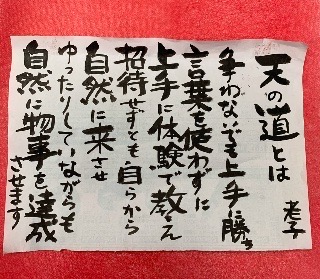 天の道とは
老子
争わないでも上手に勝ち
言葉を使わずに
上手に体験で教え
招待せずとも自らから
自然に来させ
ゆったりしていながらも
自然に物事を達成
させます